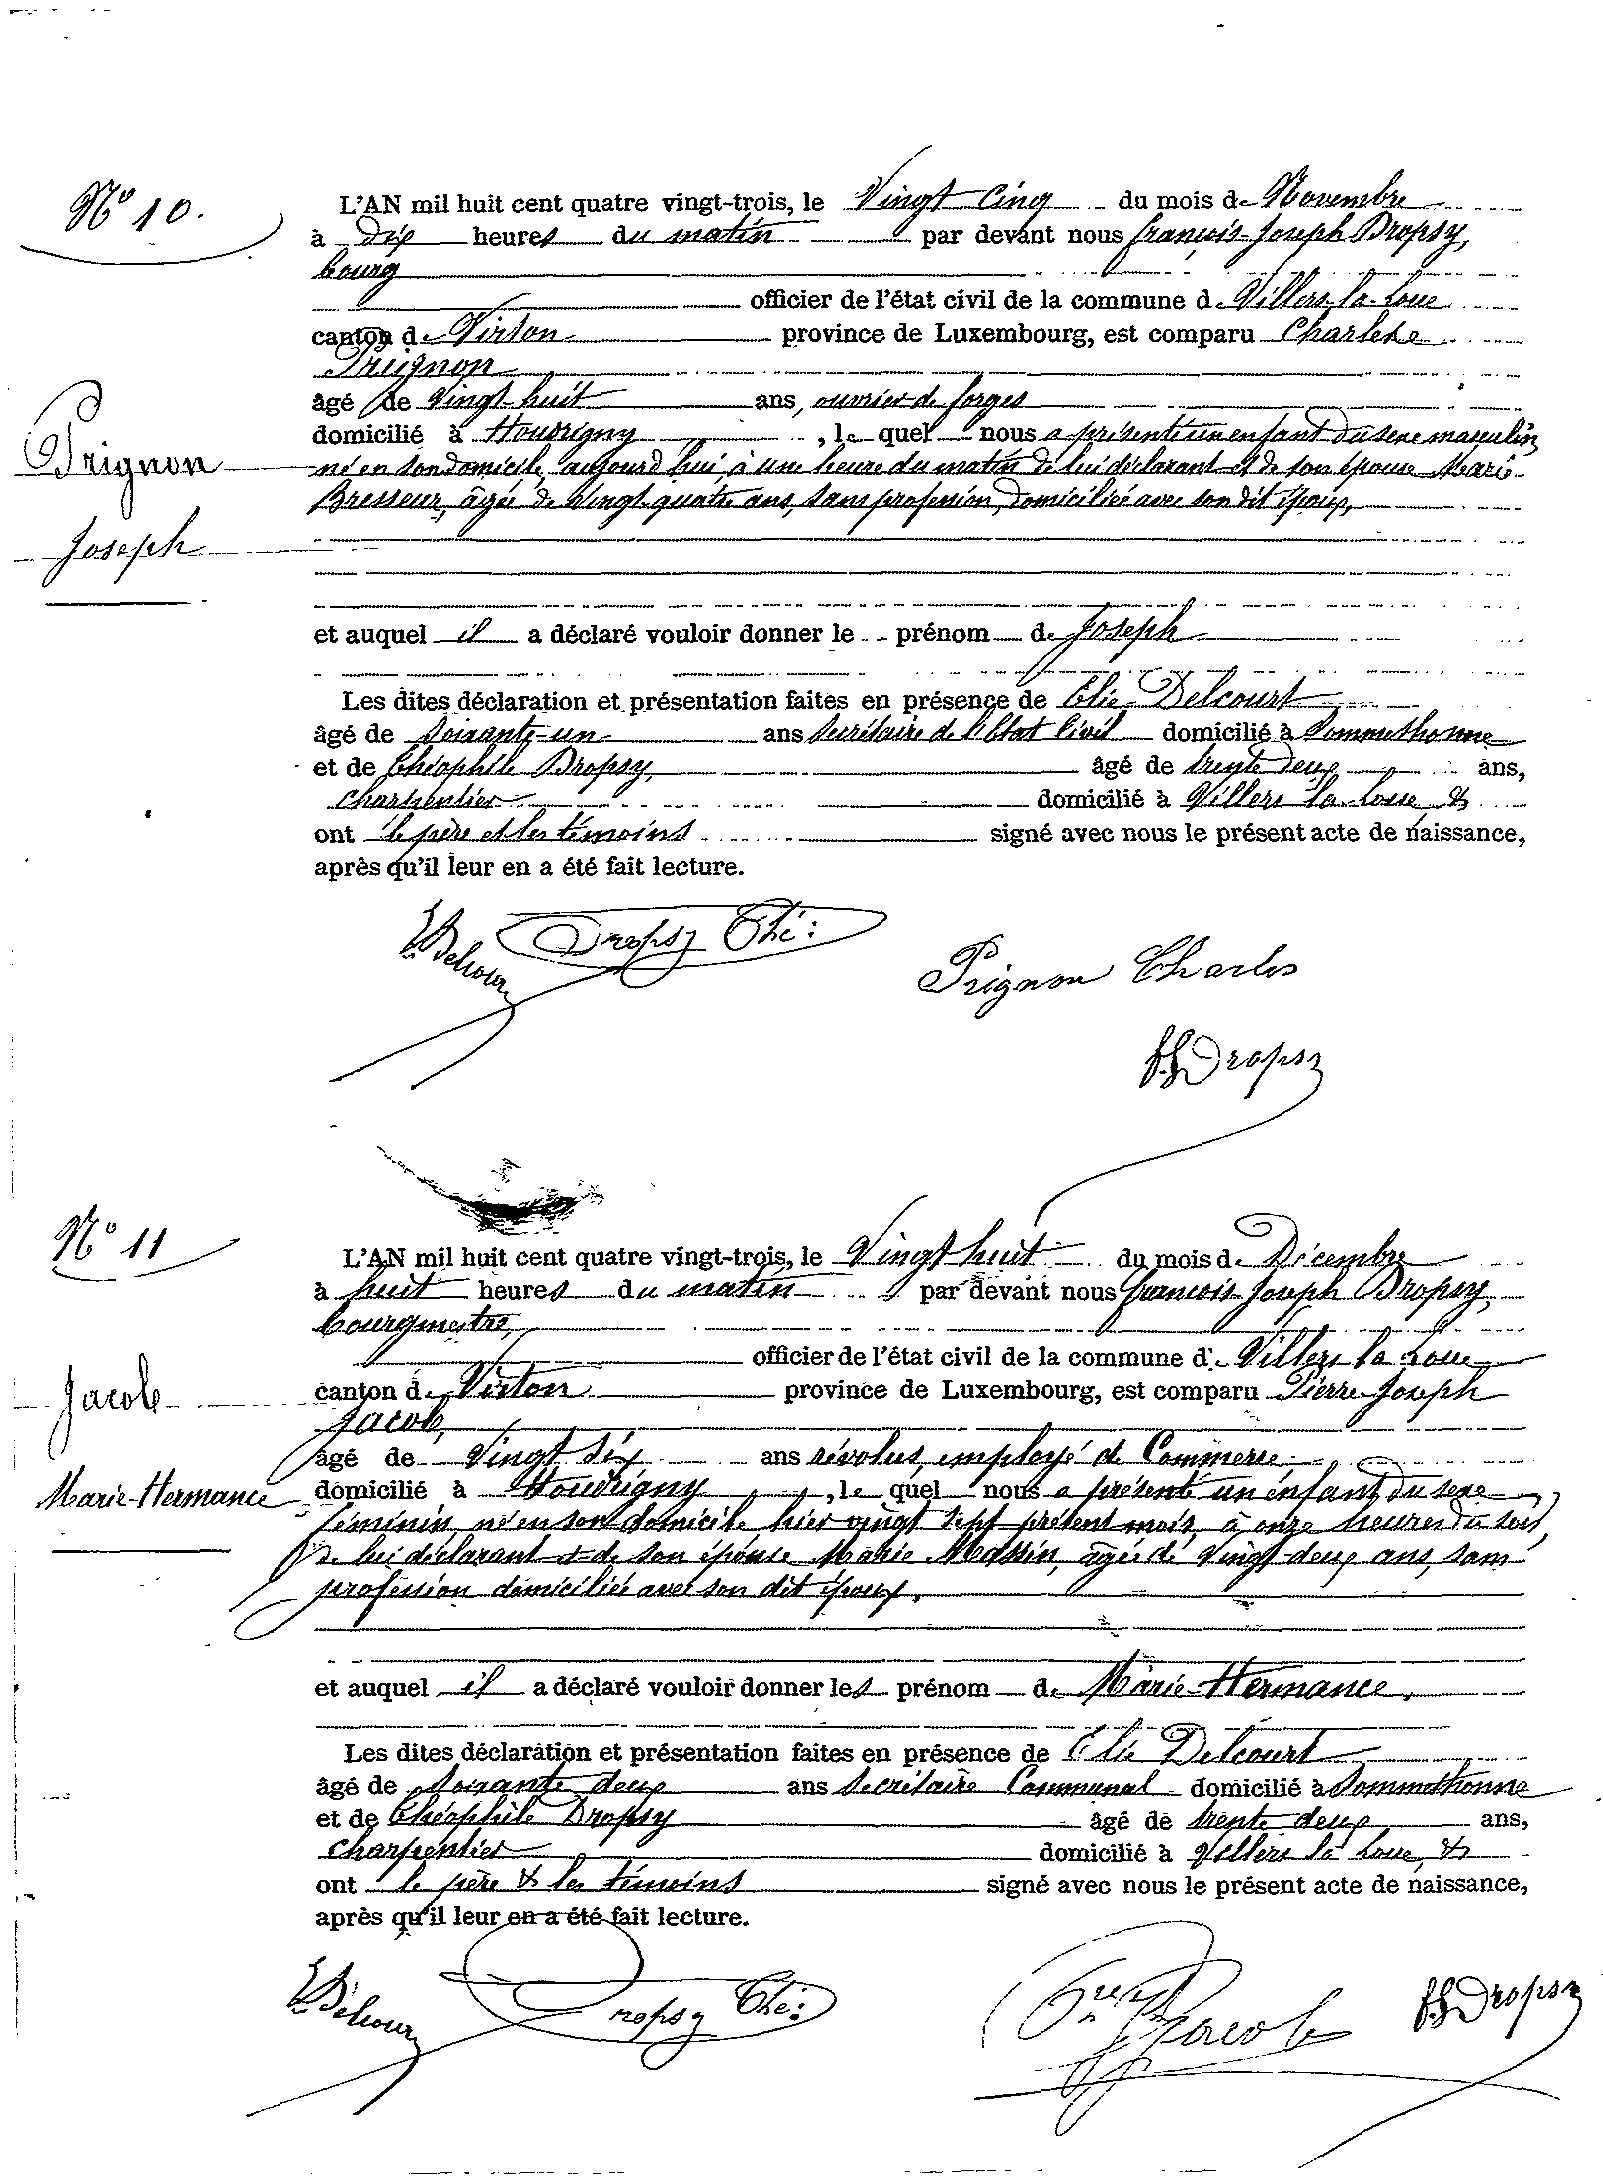 N° 10.
L'AN mil huit cent quatre vingt-trois, le Vingt Cinq du mois de Novembre
à dix heures du matin par devant nous françois-Joseph Dropsy,
bourg
officier de l'état civil de la commune de Villers-la-Loue
canton de Virton province de Luxembourg, est comparu Charles
Prignon
âgé de Vingt-huit ans, ouvrier de forges
domicilié à Houdrigny, le quel nous a présenté un enfant du sexe masculin,
né en son domicile, aujourd'hui, à une heure du matin de lui déclarant et de son épouse Marie
Bresseur, âgée de vingt-quatre ans, sans profession, domiciliée avec son dit époux,
Prignon
Joseph
et auquel il a déclaré vouloir donner le prénom de Joseph
Les dites déclaration et présentation faites en présence de Elie Delcourt
âgé de soixante-un ans Secrétaire de l'Etat Civil domicilié à Sommethonne
et de Théophile Dropsy, âgé de trente deux ans,
charpentier domicilié à Villers la-Loue &
ont le père et les témoins signé avec nous le présent acte de naissance,
après qu'il leur en a été fait lecture.
E Delcour Dropsy Thé:
Prignon Charles
f.J. Dropsy
N° 11
L'AN mil huit cent quatre vingt-trois, le Vingt huit du mois de Décembre
à huit heures du matin par devant nous françois-Joseph Dropsy,
bourgmestre,
officier de l'état civil de la commune de Villers la Loue
canton de Virton province de Luxembourg, est comparu Pierre-Joseph
Jacob,
âgé de Vingt Six ans révolus, employé de Commerce,
domicilié à Houdrigny, le quel nous a présenté un enfant du sexe
féminin, né en son domicile hier vingt sept présent mois, à onze heures du soir,
de lui déclarant & de son épouse Marie Massin, âgée de Vingt-deux ans, sans
profession domiciliée avec son dit époux,
Jacob
Marie-Hermance
et auquel il a déclaré vouloir donner les prénom de Marie-Hermance,
Les dites déclaration et présentation faites en présence de Elie Delcourt
âgé de soixante deux ans Secrétaire Communal domicilié à Sommethonne
et de Théophile Dropsy âgé de trente deux ans,
charpentier domicilié à Villers la Loue, &
ont le père & les témoins signé avec nous le présent acte de naissance,
après qu'il leur en a été fait lecture.
E Delcour Dropsy Thé: Jacob f.J. Dropsy